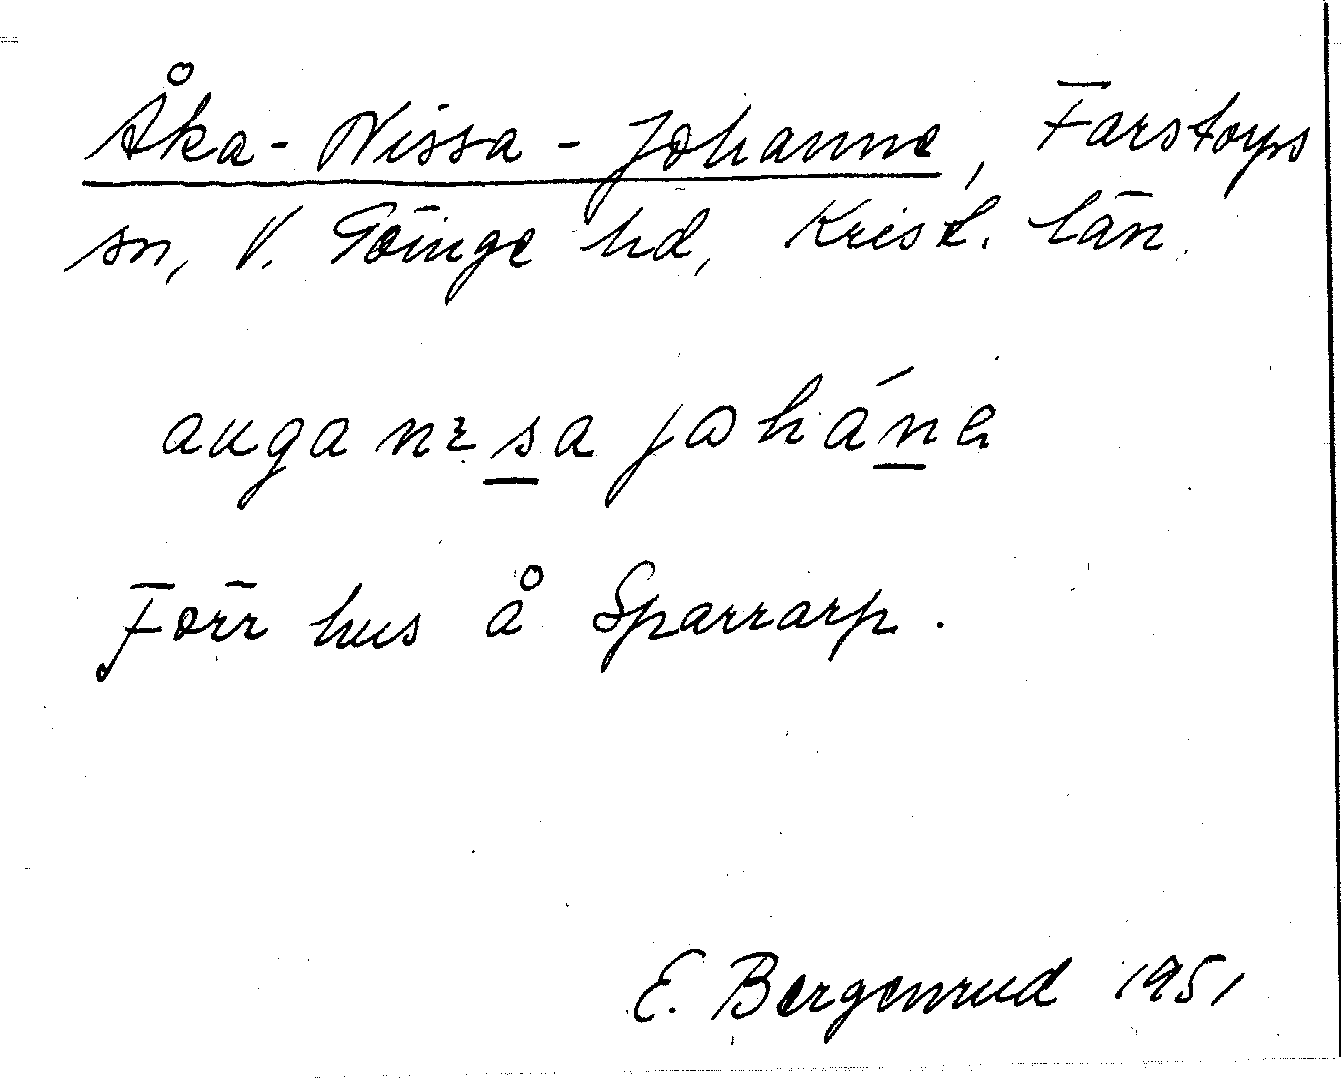 Åka-Nissa-Johanne, Farstorps
sn, V. Göinge hd, Krist. län.
auganɪsa johánə
Förr hus å Sparrarp.
E. Bergenrud 1951